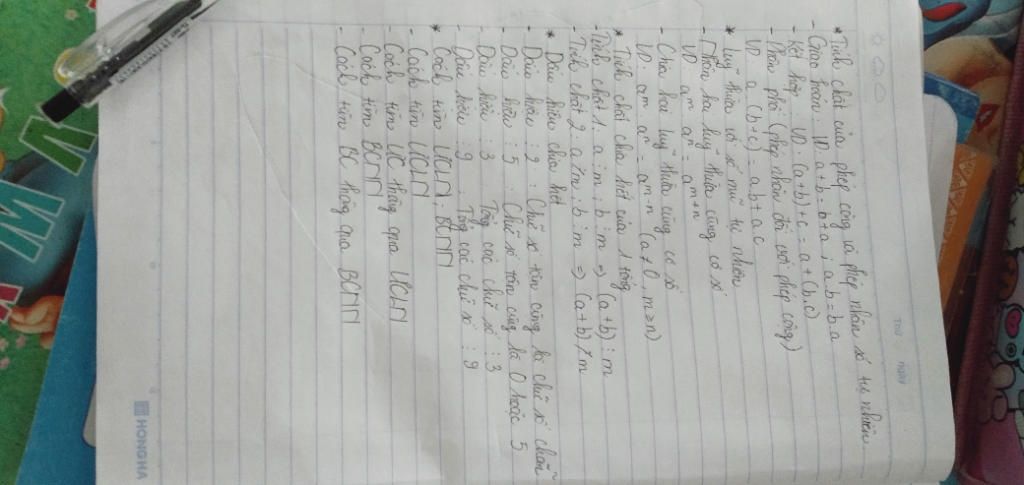 Thứ ngày
* Tính chất của phép cộng và phép nhân số tự nhiên
- Giao hoán: VD a + b = b + a ; a.b = b.a
- Kết hợp: VD: (a + b) + c = a + (b.c)
- Phân phối (phép nhân đối với phép cộng)
VD: a (b + c) = ab + ac
* Luỹ thừa với số mũ tự nhiên
- Nhân hai luỹ thừa cùng cơ số
VD aᵐ.aⁿ = aᵐ⁺ⁿ
- Chia hai luỹ thừa cùng cơ số
VD: aᵐ : aⁿ = aᵐ⁻ⁿ (a ≠ 0, m ≥ n)
* Tính chất chia hết của 1 tổng
- Tính chất 1: a ⋮ m ; b ⋮ m => (a + b) ⋮ m
- Tính chất 2: a ⋮̸ m ; b ⋮ m => (a + b) ⋮̸ m
* Dấu hiệu chia hết
- Dấu hiệu : 2 : Chữ số tận cùng là chữ số chẵn
- Dấu hiệu : 5 : Chữ số tận cùng là 0 hoặc 5
- Dấu hiệu : 3 Tổng các chữ số : 3
- Dấu hiệu : 9 . Tổng các chữ số : 9
* Cách tìm ƯCLN, BCNN
- Cách tìm ƯCLN
- Cách tìm ƯC thông qua ƯCLN
- Cách tìm BCNN
- Cách tìm BC thông qua BCNN
HONG HA